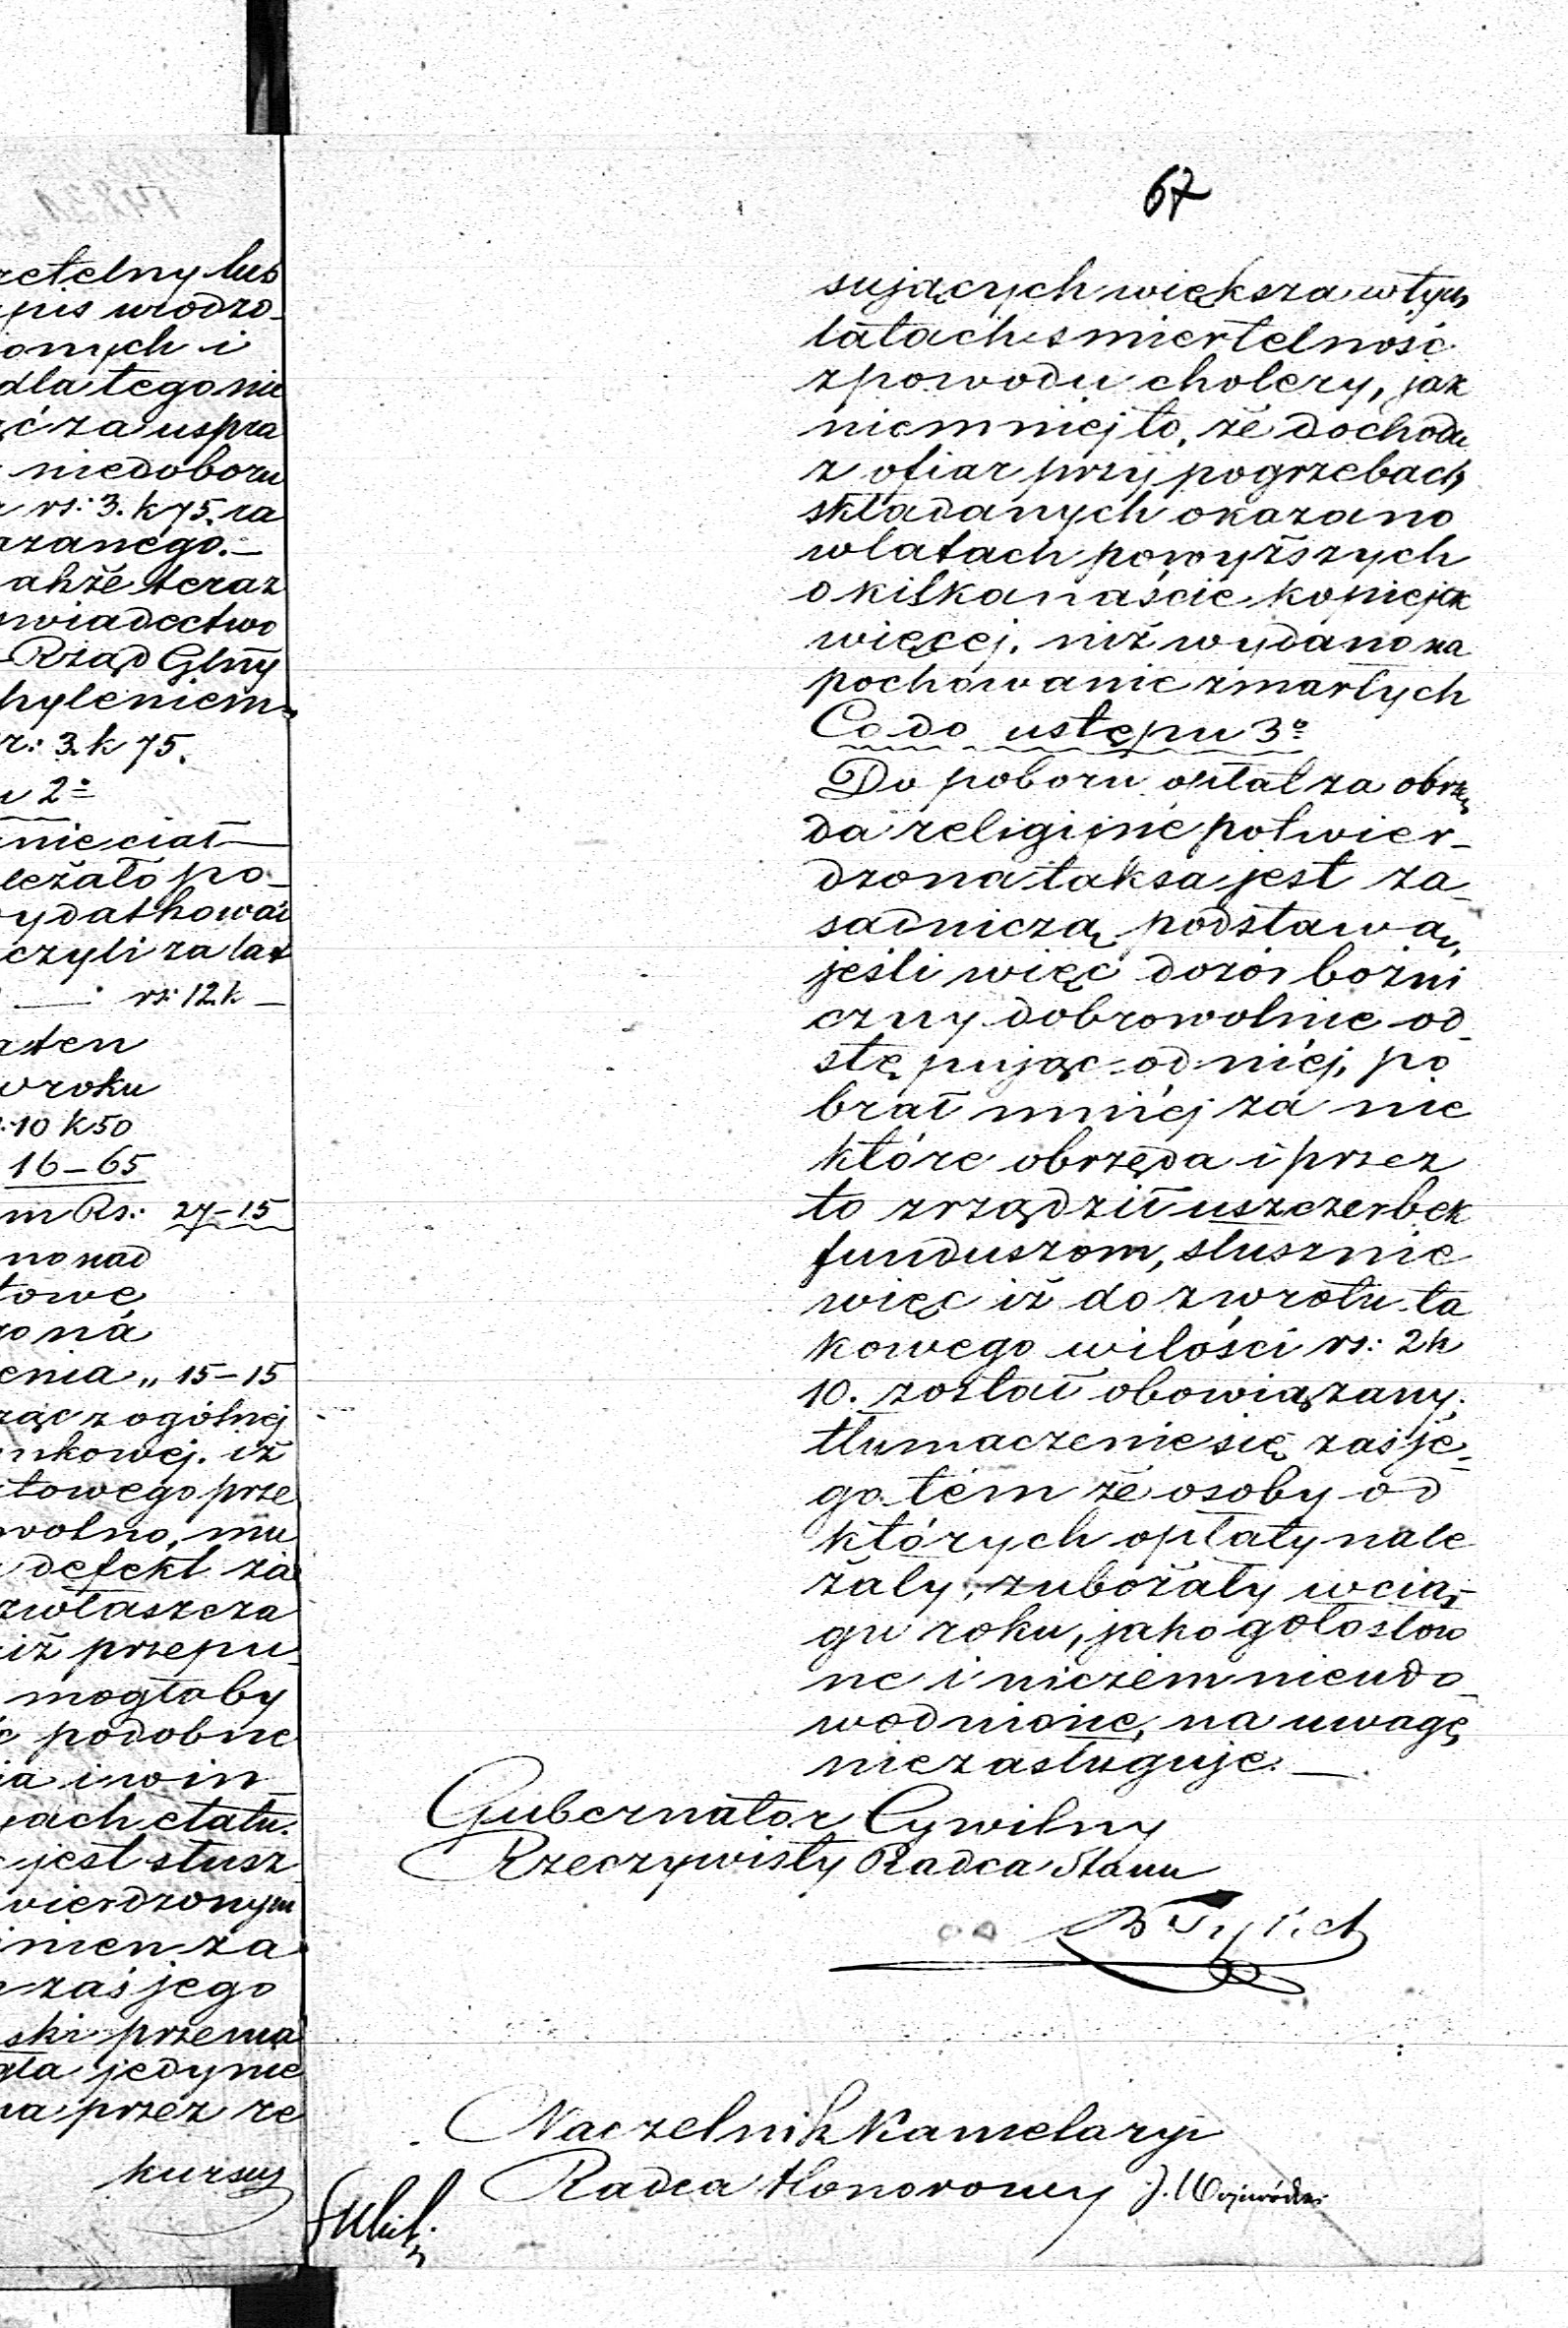 retelny lub
pis urodzo_
onych i
dla tego nie
ęć za uspra
niedoboru
rs: 3. k 75. za
azanego._
akże teraz
świadectwo
Rząd Glny
hyleniem
r: 3. k 75.
u 2º
nie ciał
leżało po_
ydatkować
czyli za lat
rs: 12 k _
a ten
w roku
: 10 k 50
16_65
m Rs: 27_15
no nad
towę
zoná
enia „ 15_15
ząc z ogólnej
unkowej. iż
towego prze
wolno, mu
defekt za
zwłaszcza
iż przepu_
mogłaby
ć podobne
ia i win
jach etatu.
jest słusz
wierdzonym
inien za
zaś jego
ski przema
gła jedynie
na przez re
kursu
67
sujących większa w tych
latach smiertelność
z powodu cholery, jak
niemniej to, że dochodu
z ofiar przy pogrzebach
składanych okazano
w latach powyższych
o kilkanaście kopiejek
więcej. niż wydano na
pochowanie zmarłych
Co do ustępu 3º
Do poboru opłat za obrzę
da religijne potwier_
dzona taksa jest za_
sadniczą podstawą,
jeśli więc dozór bożni
czny dobrowolnie od_
stępując od niéj, po
brał mniéj za nie
które obrzęda i przez
to zrządził uszczerbek
funduszom, słusznie
więc iż do zwrotu ta
kowego w ilości rs: 2 k
10. został obowiązany;
tłumaczenie się zaś je_
go tém że osoby od
których opłaty nale
żały, zubożały w cią_
gu roku, jako gołosłow
ne i niczém nieudo_
wodnione, na uwagę
niezasługuje._
Gubernator Cywilny
Rzeczywisty Radca Stanu
Naczelnik Kancelaryi
Radca Honorowy J. Wojwódzki